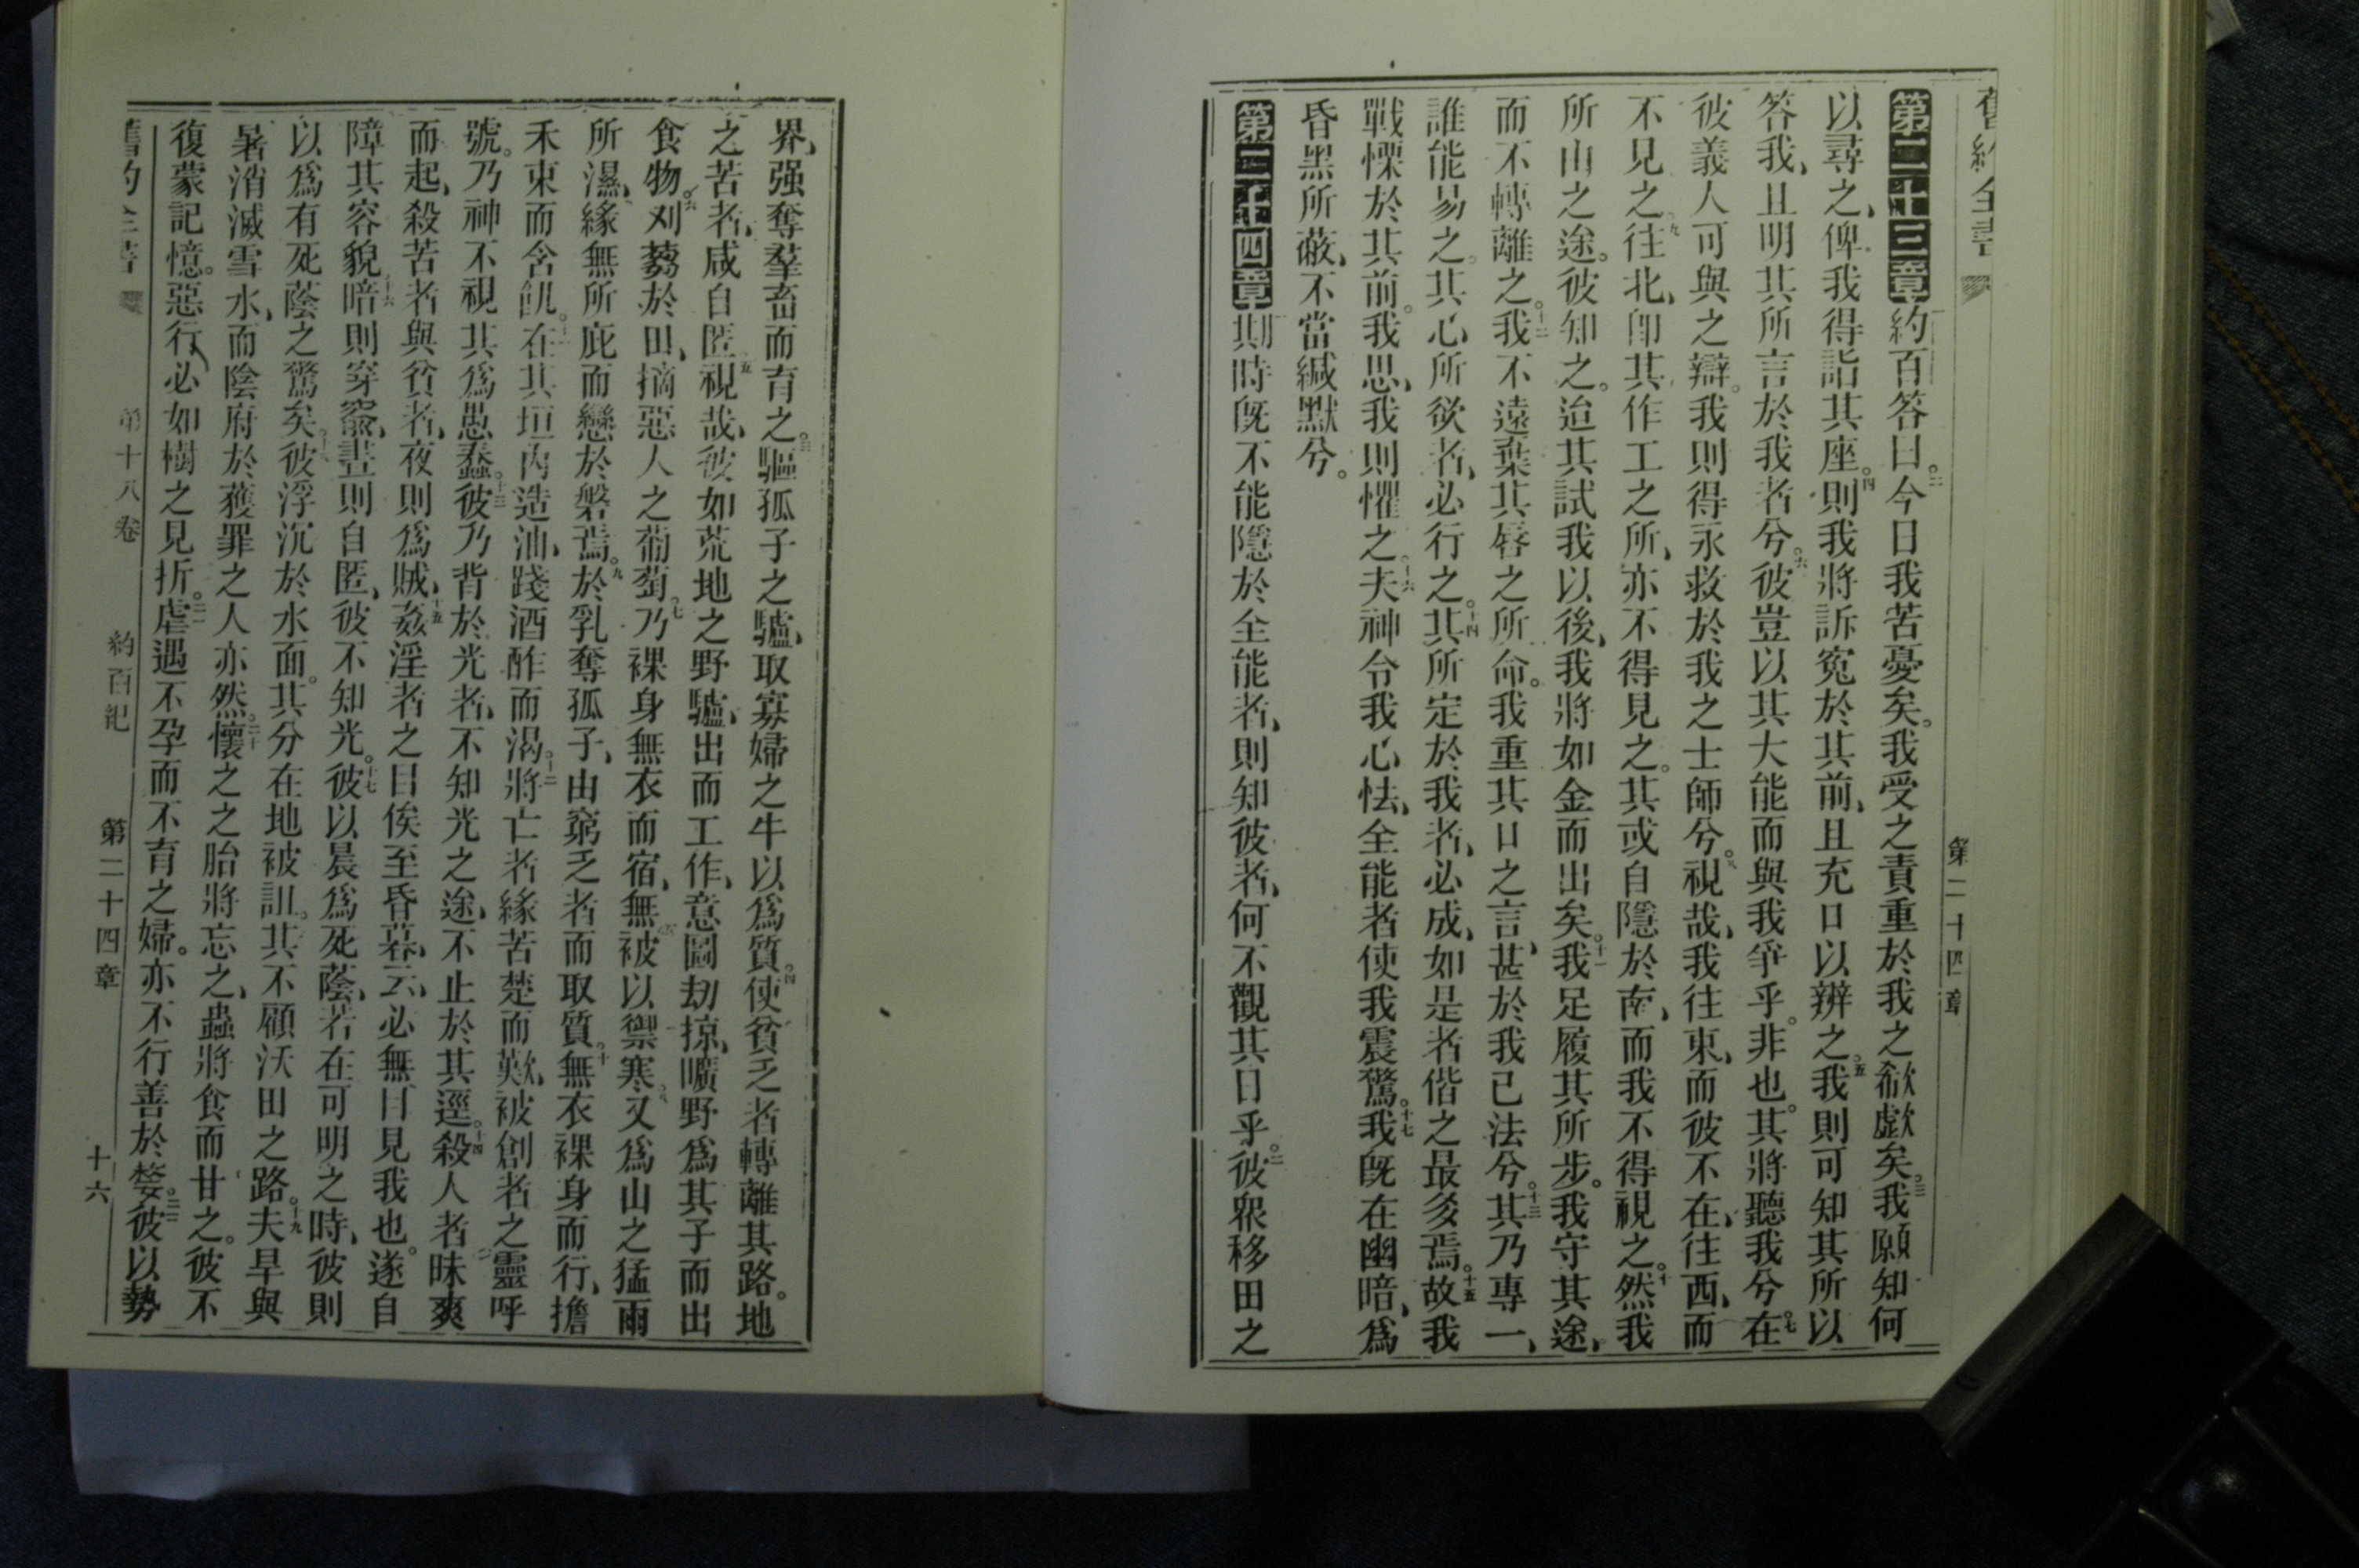 舊約全書
第二十四章
第二十三章約百答曰。二今日我苦憂矣。我受之責重於我之欷歔矣。三我願知何
以尋之、俾我得詣其座。四則我將訴寃於其前、且充口以辨之。五我則可知其所以
答我、且明其所言於我者兮。六彼豈以其大能而與我爭乎。非也。其將聽我兮。七在
彼義人可與之辯。我則得永救於我之士師兮。八視哉、我往東、而彼不在、往西、而
不見之。九往北、卽其作工之所、亦不得見之。其或自隱於南、而我不得視之。十然我
所由之途。彼知之。迨其試我以後、我將如金而出矣。十一我足履其所步。我守其途、
而不轉離之。十二我不遠棄其唇之所命。我重其口之言、甚於我已法兮。十三其乃專一、
誰能易之。其心所欲者、必行之。十四其所定於我者、必成、如是者偕之最多焉。十五故我
戰慄於其前。我思、我則懼之。十六夫神令我心怯、全能者使我震驚。十七我旣在幽暗、爲
昏黑所蔽、不當緘默兮。
第二十四章期時旣不能隱於全能者、則知彼者、何不觀其日乎。二彼眾移田之
界、强奪羣畜而育之。三驅孤子之驢、取寡婦之牛以爲質。四使貧乏者轉離其路。地
之苦者、咸自匿。五視哉、彼如荒地之野驢、出而工作、意圖劫掠、曠野爲其子而出
食物。六刈蒭於田、摘惡人之葡萄。七乃裸身無衣而宿、無被以禦寒。八又爲山之猛雨
所濕、緣無所庇而戀於磐焉。九於乳奪孤子、由窮乏者而取質。十無衣裸身而行、擔
禾束而含飢。十一在其垣內造油、踐酒酢而渴。十二將亡者緣苦楚而歎、被創者之靈呼
號。乃神不視其爲愚蠢。十三彼乃背於光者、不知光之途、不止於其逕。十四殺人者昧爽
而起、殺苦者與貧者、夜則爲賊。十五姦淫者之目俟至昏暮、云、必無目見我也。遂自
障其容貌。十六暗則穿窬、晝則自匿、彼不知光。十七彼以晨爲死蔭、若在可明之時、彼則
以爲有死蔭之驚矣。十八彼浮沉於水面。其分在地被詛。其不顧沃田之路。十九夫旱與
暑消滅雪水、而陰府於獲罪之人亦然。二十懷之之胎將忘之、蟲將食而甘之。彼不
復蒙記憶。惡行必如樹之見折。二一虐遇不孕而不育之婦。亦不行善於嫠。二二彼以勢
舊約全書 第十八卷 約百紀 第二十四章 十六